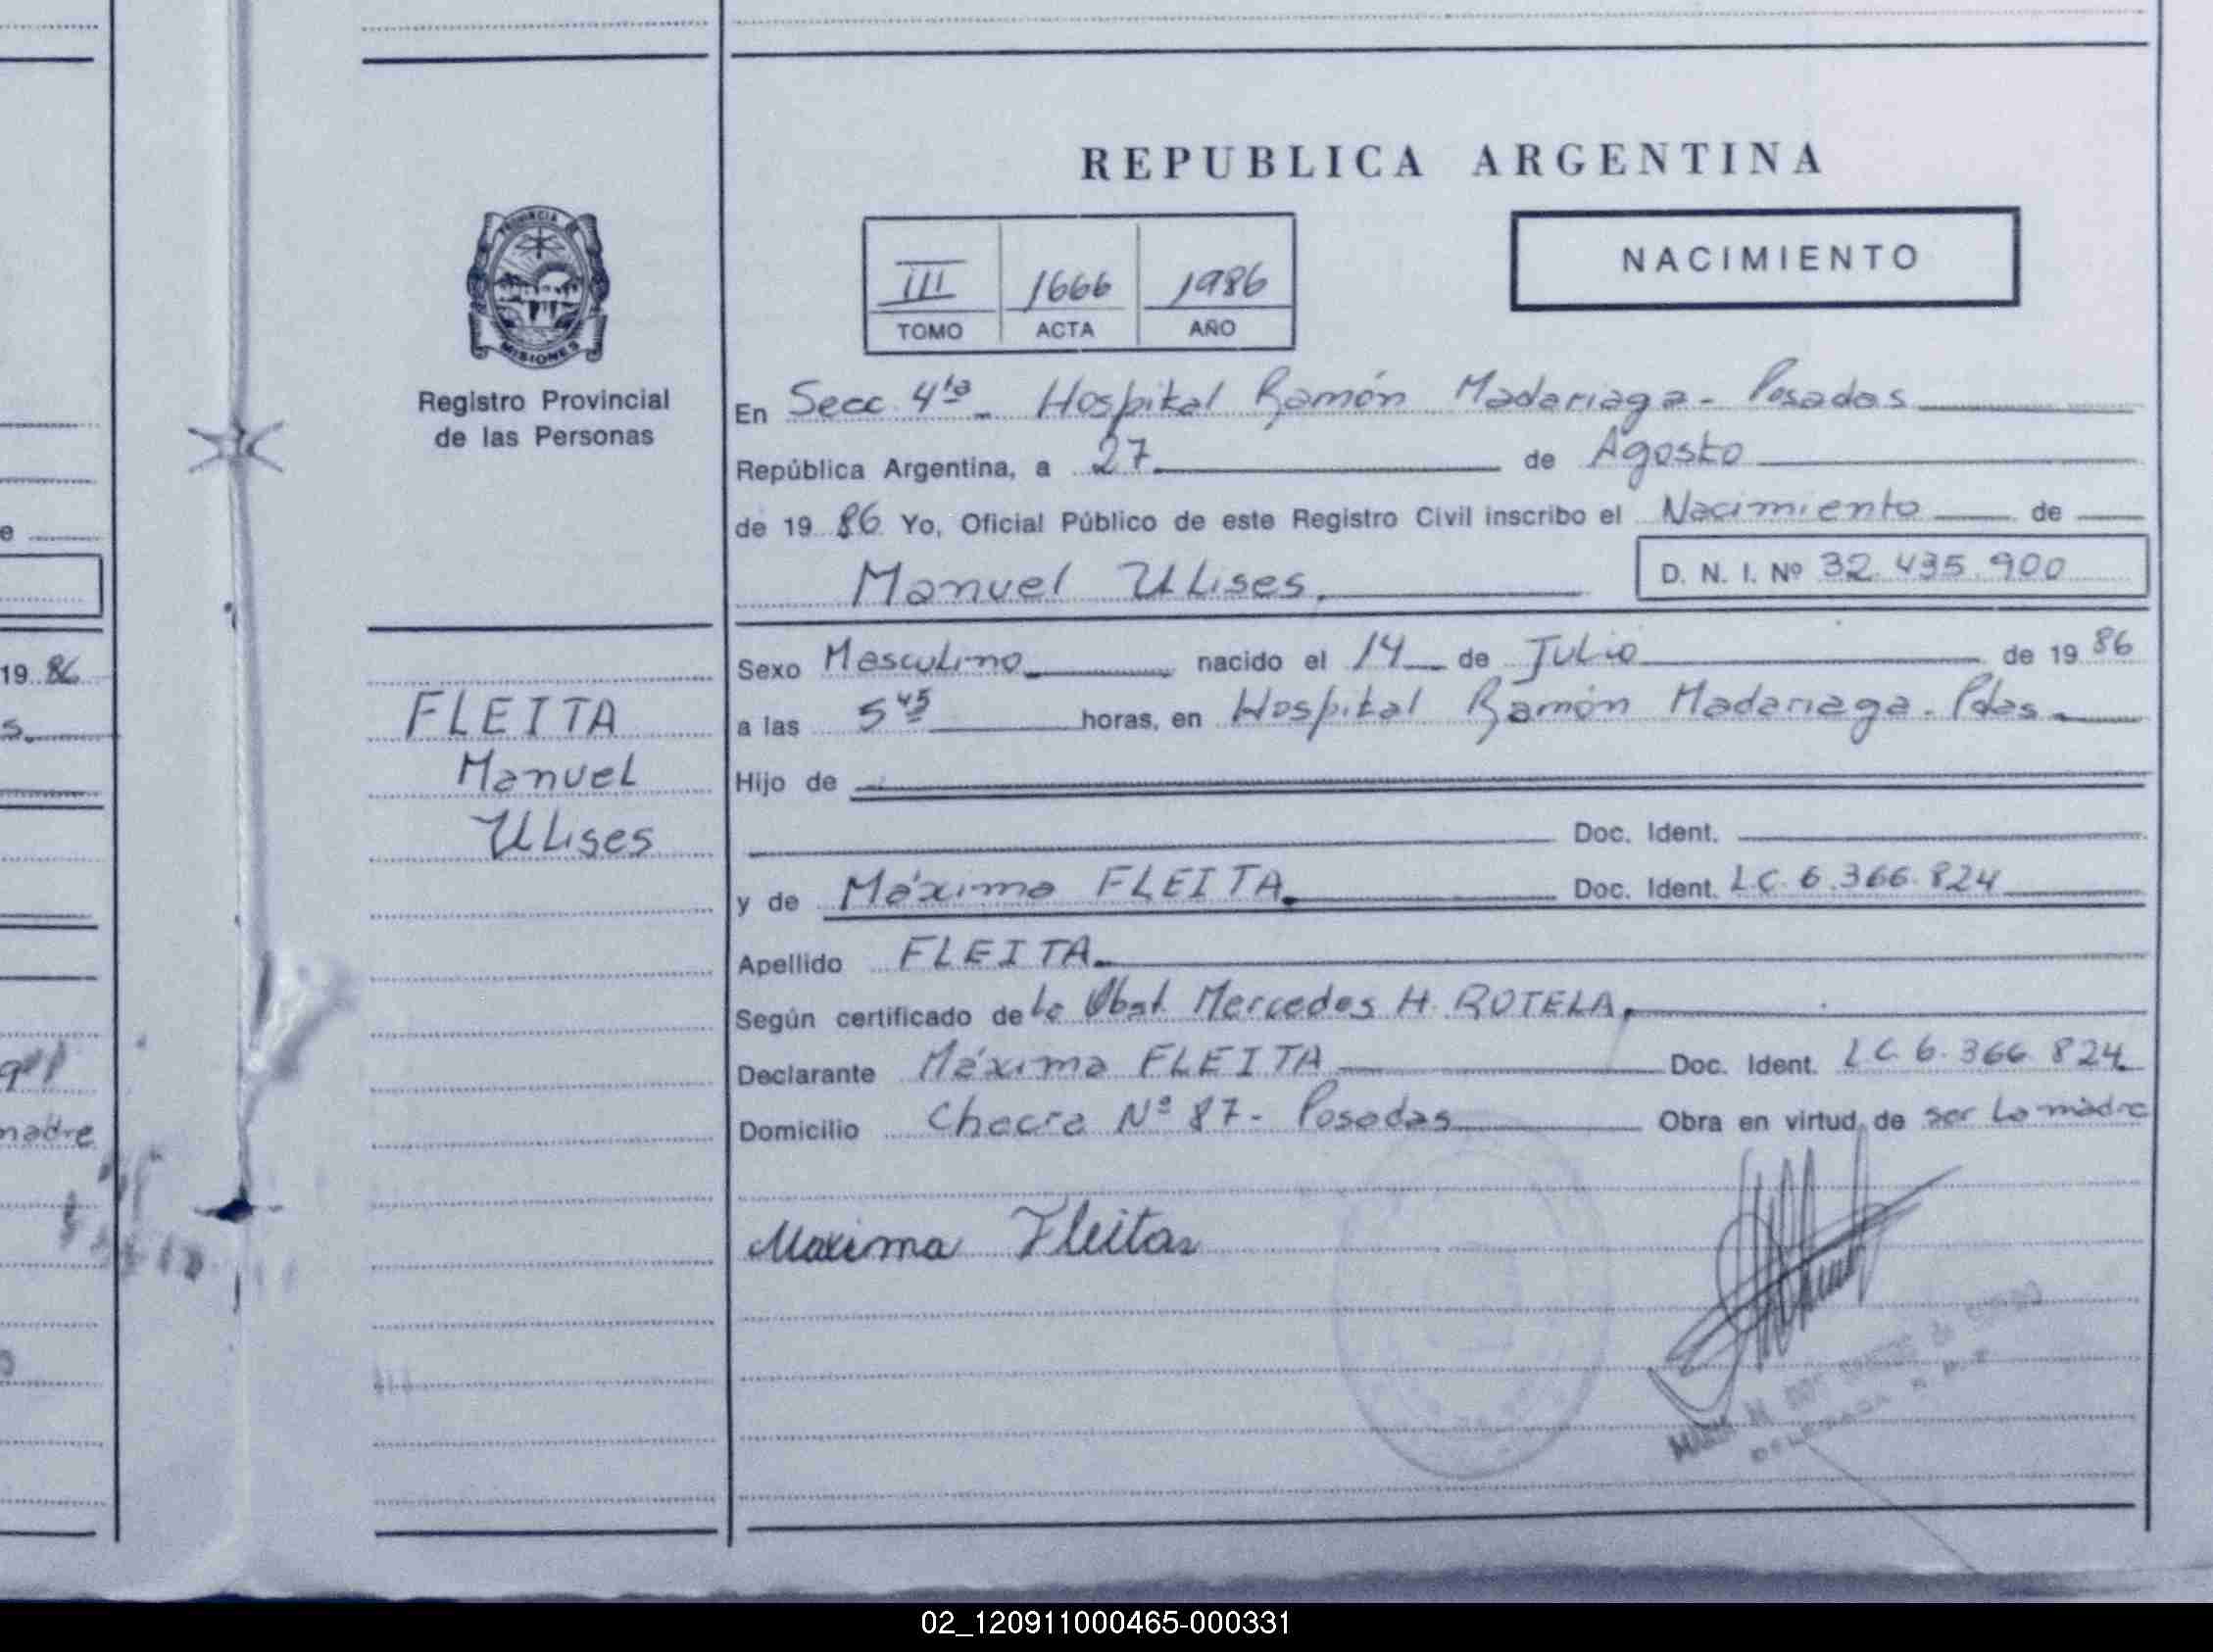 REPUBLICA ARGENTINA
PROVINCIA
MISIONES
Registro Provincial
de las Personas
III 1666 1986
TOMO ACTA AÑO
NACIMIENTO
En Secc 4ta - Hospital Ramón Madariaga - Posadas
República Argentina, a 27 de Agosto
de 19 86 Yo, Oficial Público de este Registro Civil inscribo el Nacimiento de
Manuel Ulises.
D. N. I. Nº 32.435.900
FLEITA
Manuel
Ulises
Sexo Masculino nacido el 14 de Julio de 19 86
a las 5 45 horas, en Hospital Ramón Madariaga - Pdas.
Hijo de
Doc. Ident.
y de Máxima FLEITA. Doc. Ident. L.C. 6.366.824
Apellido FLEITA.
Según certificado de la Obst. Mercedes H. ROTELA.
Declarante Máxima FLEITA Doc. Ident. L.C. 6.366.824
Domicilio Chacra Nº 87 - Posadas Obra en virtud de ser la madre
Maxima Fleitas
19 86
madre
02_120911000465-000331